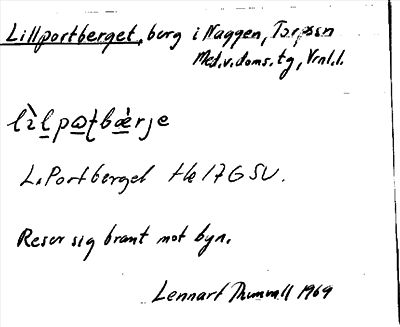 Lillportberget, berg i Naggen, Torpssn
Med.v.doms.tg, Vrnl.l.
lìlpaʈbæ̀rje
L. Portberget He 17 G SV.
Reser sig brant mot byn.
Lennart Thunvall 1969